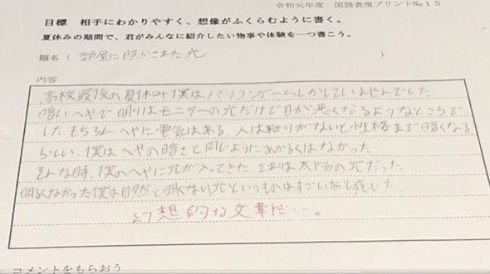 令和元年度 国語表現プリントNo.15
目標 相手にわかりやすく、想像がふくらむように書く。
夏休みの期間で、君がみんなに紹介したい物事や体験を一つ書こう。
題名(部屋に照らされた光
内容
高校最後の夏休み僕はパソコンゲームしかしていませんでした
暗いへやで明りはモニターの光だけで目が悪くなるようなところで
した。もちろんへやに電気はある、人は明りがないと性格まで暗くなる
らしい、僕はへやの暗さと同じように明るくはなかった。
そんな時、僕のへやに光が入ってきた、それは太陽の光だった
明るくなかった僕は自分だと照れない光というものはすごいなと感じた
幻想的な文章だ…。
コメントをもらおう